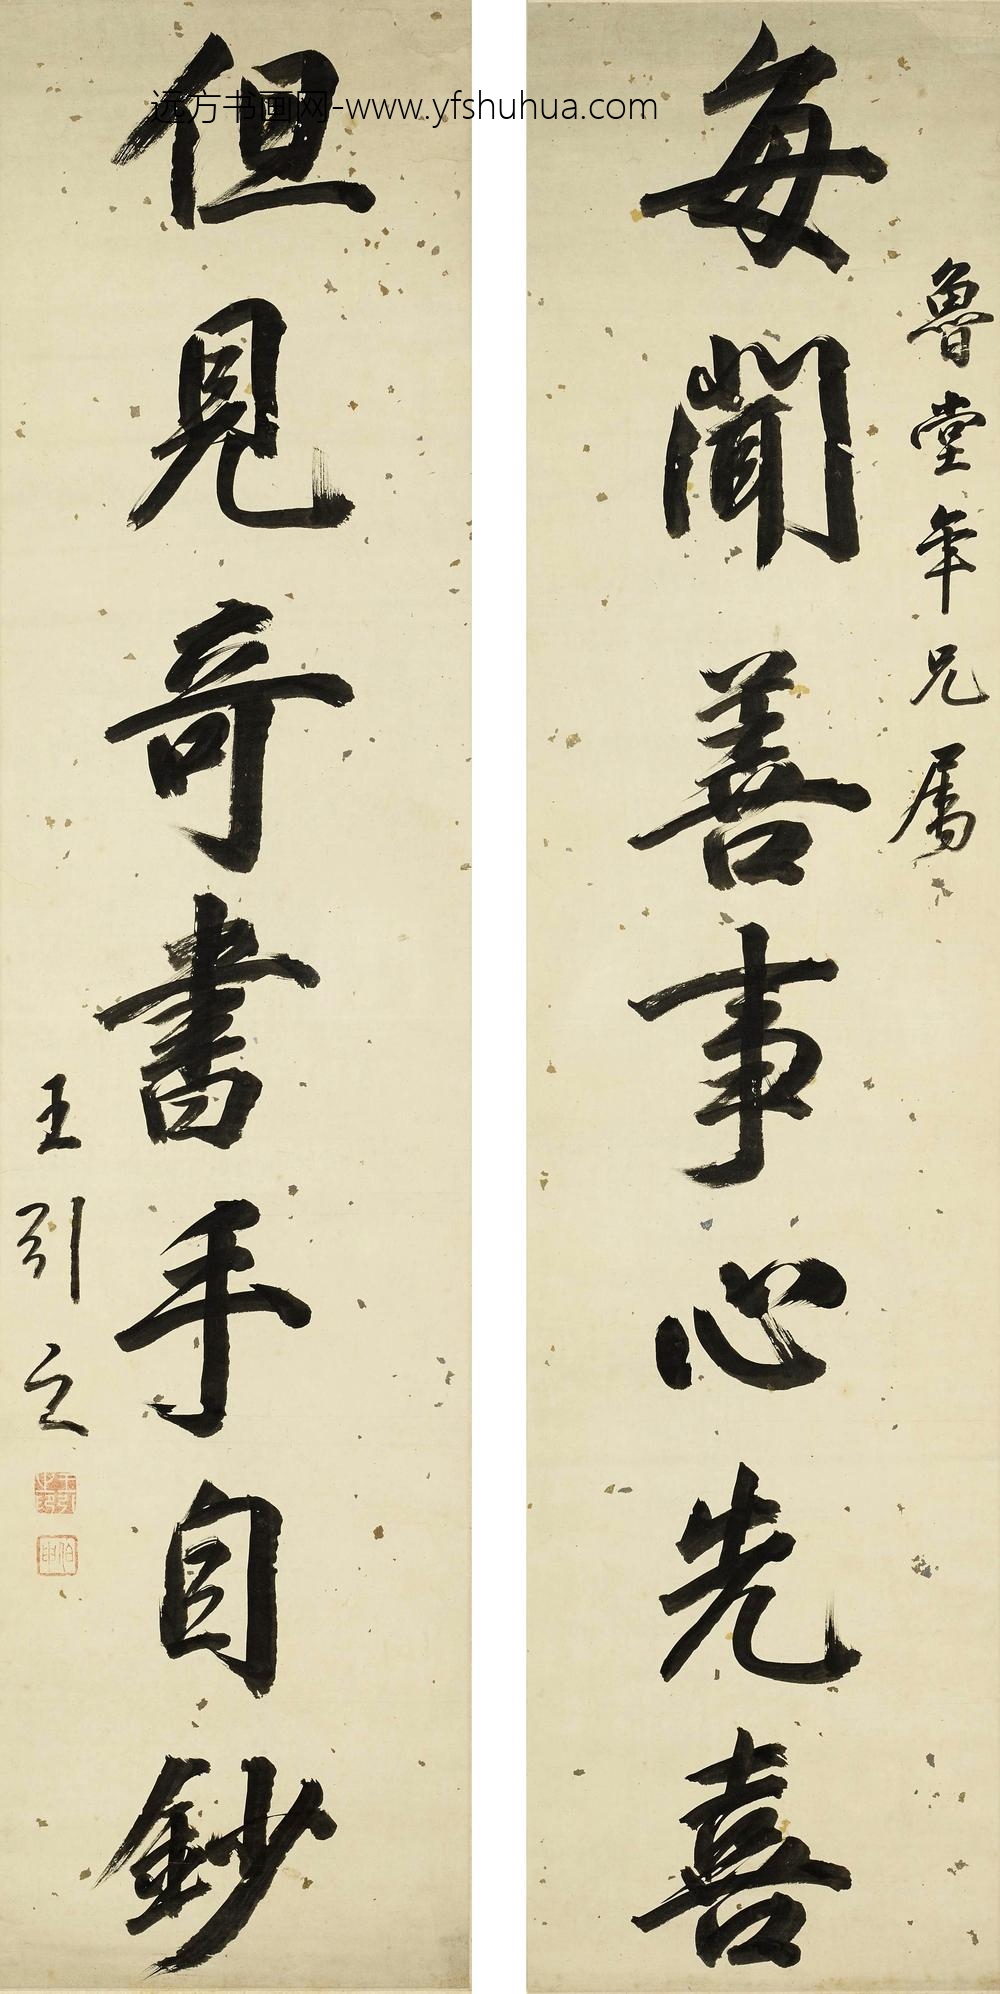 远方书画网-www.yfshuhua.com
魯堂年兄属
每聞善事心先喜
但見奇書手自鈔
王引之
王引之印
伯申